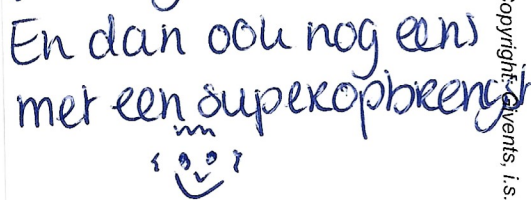 En dan ook nog eens
met een superopbrengst
Copyright Givents, i.s.